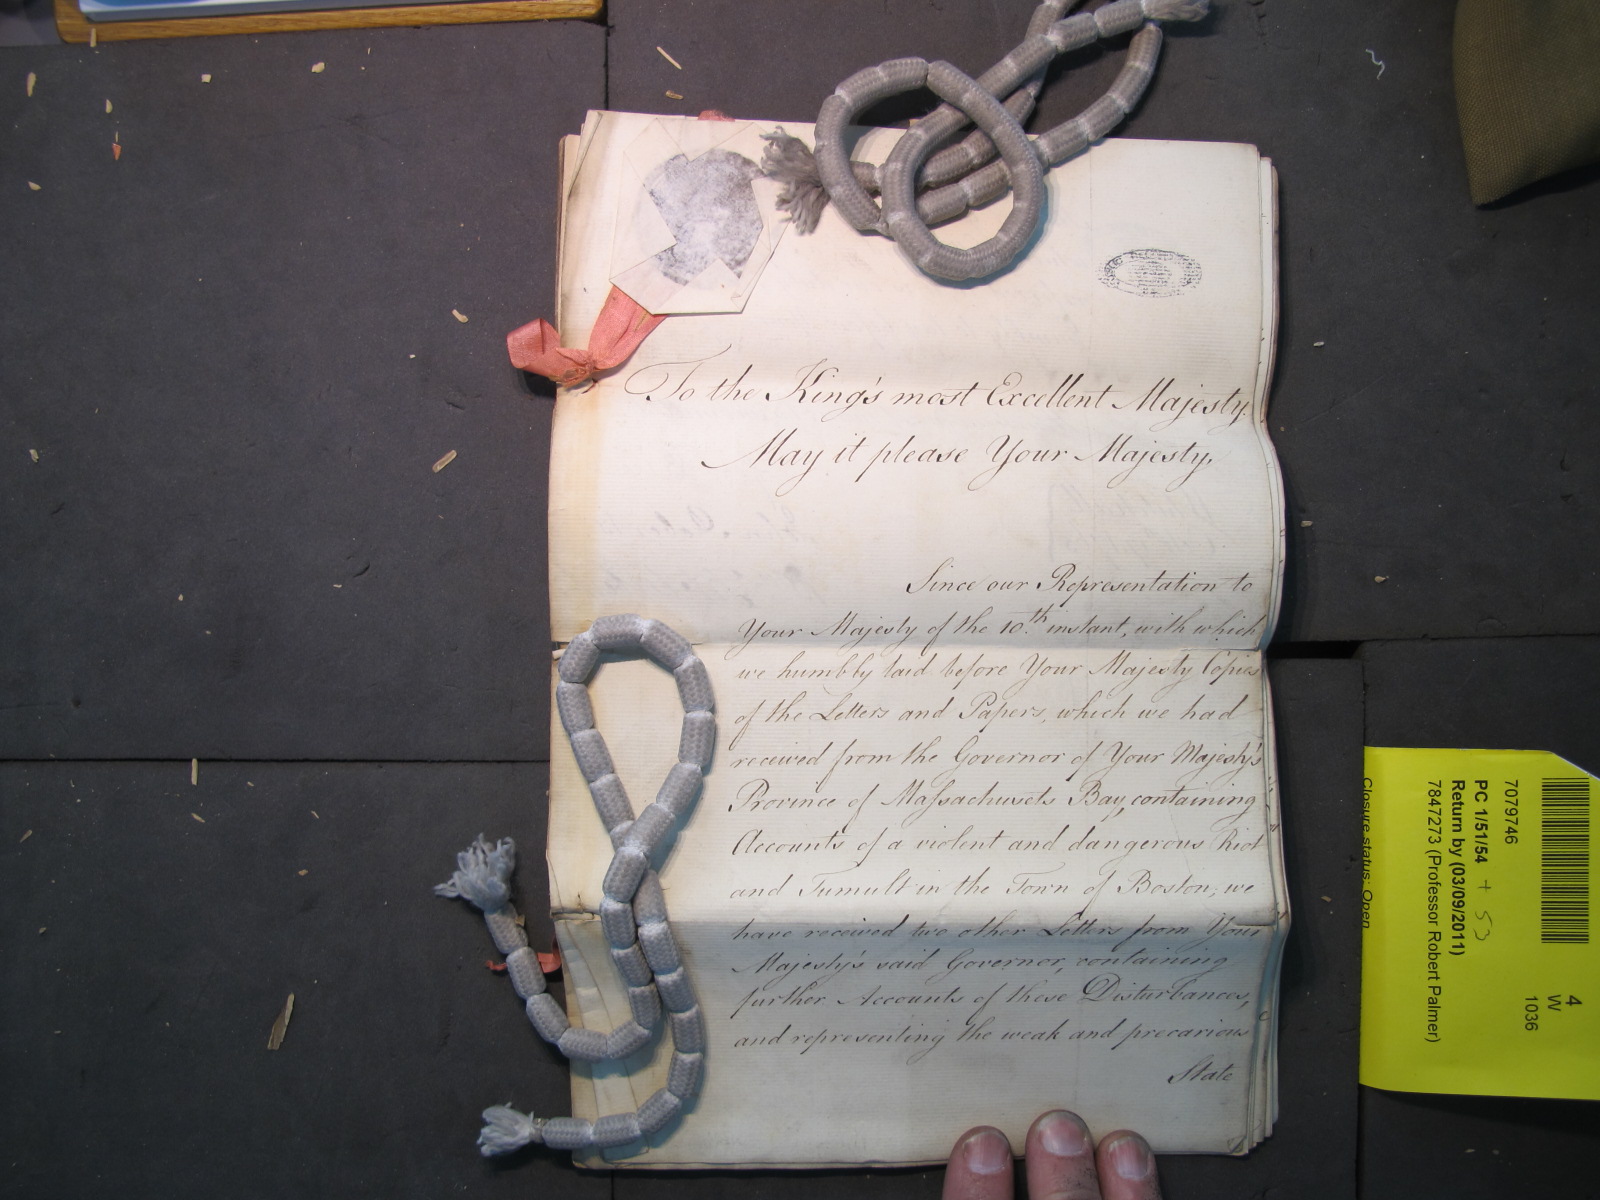 To the King's most Excellent Majesty.
May it please Your Majesty,
Since our Representation to
Your Majesty of the 10.th instant, with which
we humbly laid before Your Majesty Copies
of the Letters and Papers, which we had
received from the Governor of Your Majesty's
Province of Massachusets Bay, containing
Accounts of a violent and dangerous Riot
and Tumult in the Town of Boston; we
have received two other Letters from Your
Majesty's said Governor, containing
further Accounts of these Disturbances,
and representing the weak and precarious
State
7079746
PC 1/51/54 + 53
Return by (03/09/2011)
7847273 (Professor Robert Palmer)
Closure status: Open
4
W
1036